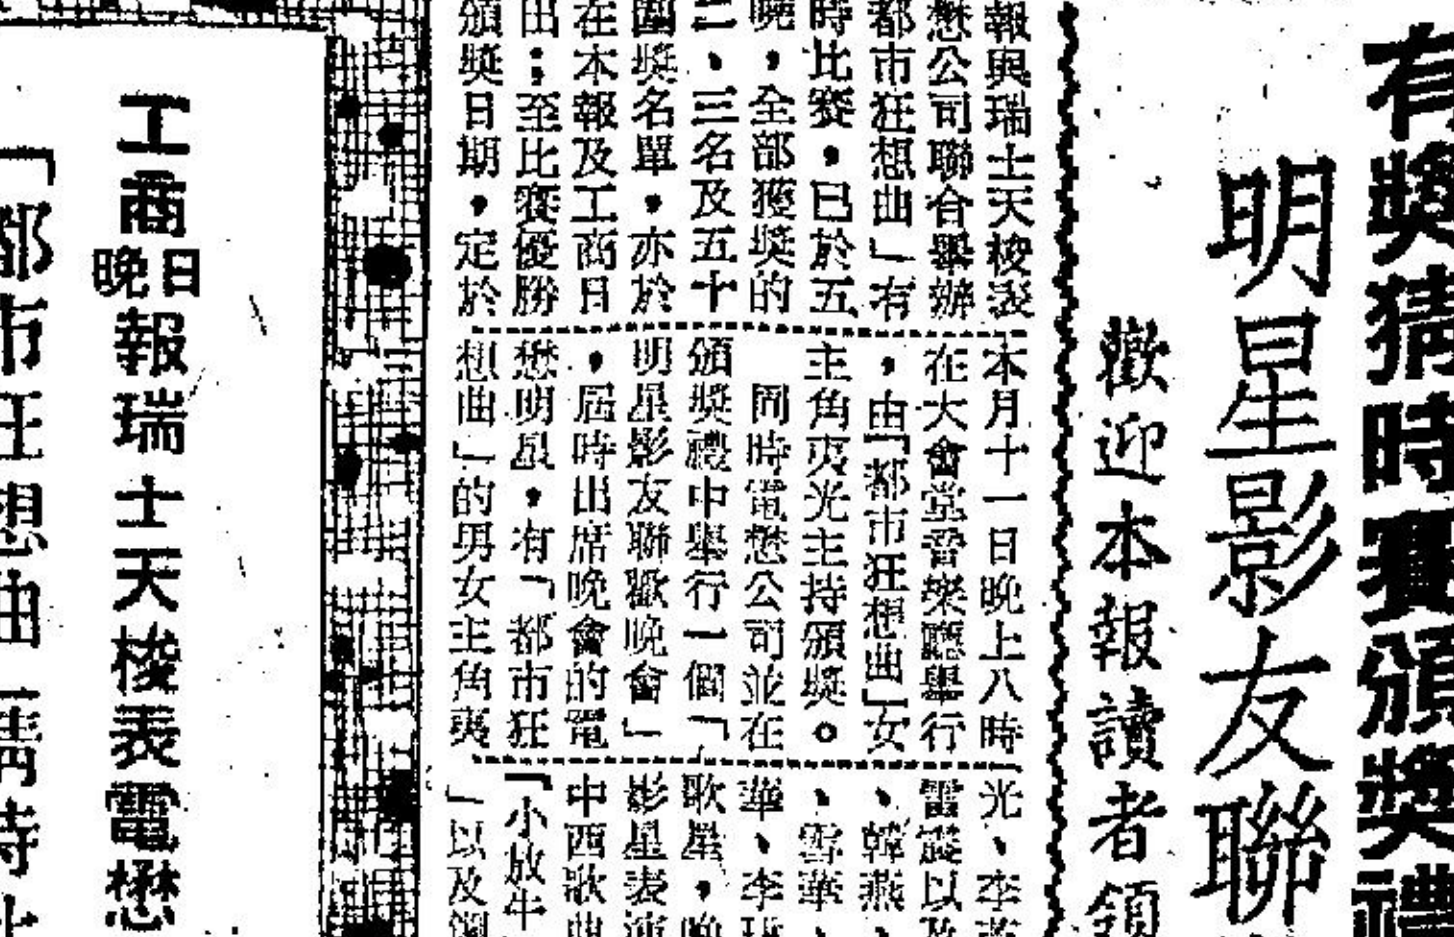 有獎猜時賽頒獎禮
明星影友聯
歡迎本報讀者領
報與瑞士天梭表
懋公司聯合舉辦
都市狂想曲」有
時比賽，已於五
晚，全部獲獎的
二、三名及五十
圍獎名單，亦於
在本報及工商日
出；至比賽優勝
頒獎日期，定於
本月十一日晚上八時
在大會堂音樂廳舉行
，由「都市狂想曲」女
主角夷光主持頒獎。
同時電懋公司並在
頒獎禮中舉行一個「
明星影友聯歡晚會」
，屆時出席晚會的電
懋明星，有「都市狂
想曲」的男女主角夷
光、李
雷震以及
、韓燕、
、雪華、
華、李
歌星，晚
影星表演
中西歌曲
「小放牛
」以及
工商日晚報瑞士天梭表電懋
「都市狂想曲」猜時比